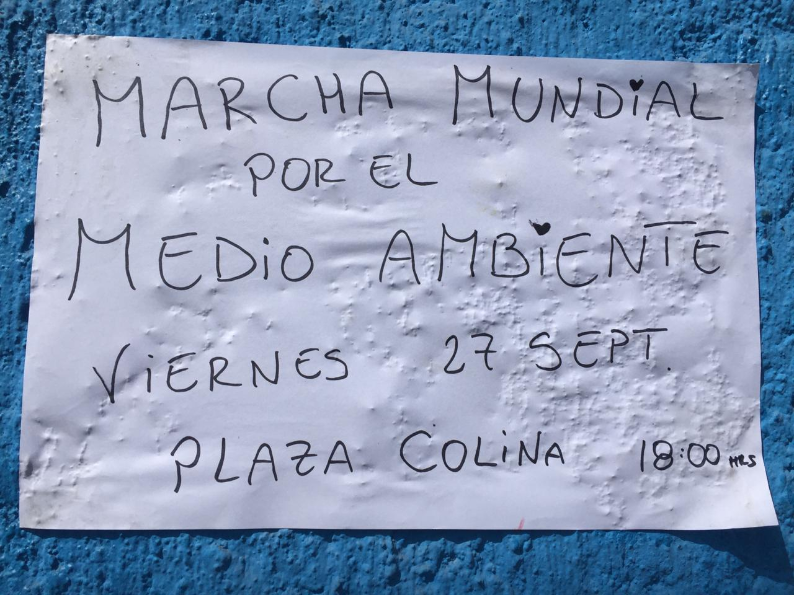 MARCHA MUNDiAL
POR EL
MEDiO AMBiENTE
ViERNES 27 SEPT.
PLAZA COLiNA 18:00 HRS